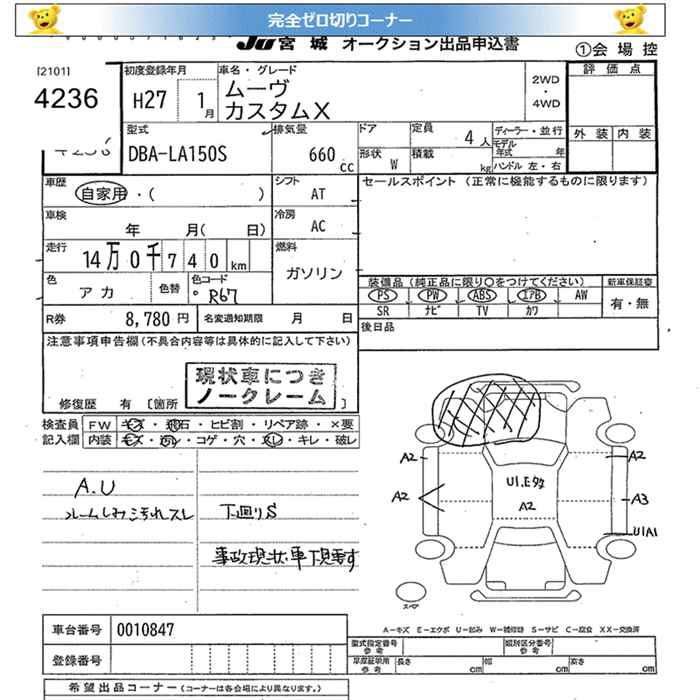 完全ゼロ切りコーナー
JU 宮城 オークション出品申込書
①会場控
[2101]
4236
初度登録年月
H27 1月
車名・グレード
ムーヴ
カスタムX
2WD
・
4WD
評価点
外装 内装
型式
DBA-LA150S
排気量
660 cc
ドア
形状 W
定員 4人
積載 kg
ディーラー・並行
モデル年式 年
ハンドル 左・右
車歴
自家用・( )
シフト
AT
セールスポイント (正常に機能するものに限ります)
車検
年 月( 日)
冷房
AC
走行
14万0千740km
燃料
ガソリン
色
アカ
色替
色コード
R67
装備品(純正品に限り○をつけてください)
新車保証書
PS PW ABS エアB AW
SR ナビ TV カワ
有・無
R券 8,780円
名変通知期限 月 日
後日品
注意事項申告欄(不具合内容等は具体的に記入して下さい)
現状車につき
ノークレーム
修復歴 有 〔箇所
検査員
記入欄
FW キズ・飛石・ヒビ割・リペア跡・×要
内装 キズ・汚れ・コゲ・穴・スレ・キレ・破レ
A.U
ルームしみ汚れスレ
下廻りS
事故現状車下見要す
A2
A2
A2
A3
U1A1
U1.E多数
A2
スペア
車台番号 0010847
登録番号
A－キズ E－エクボ U－凹み W－補修跡 S－サビ C－腐食 XX－交換済
型式指定番号
参考
類別区分番号
参考
車庫証明用
参考
長さ cm
幅 cm
高さ cm
希望出品コーナー(コーナーは各会場により異なります。)